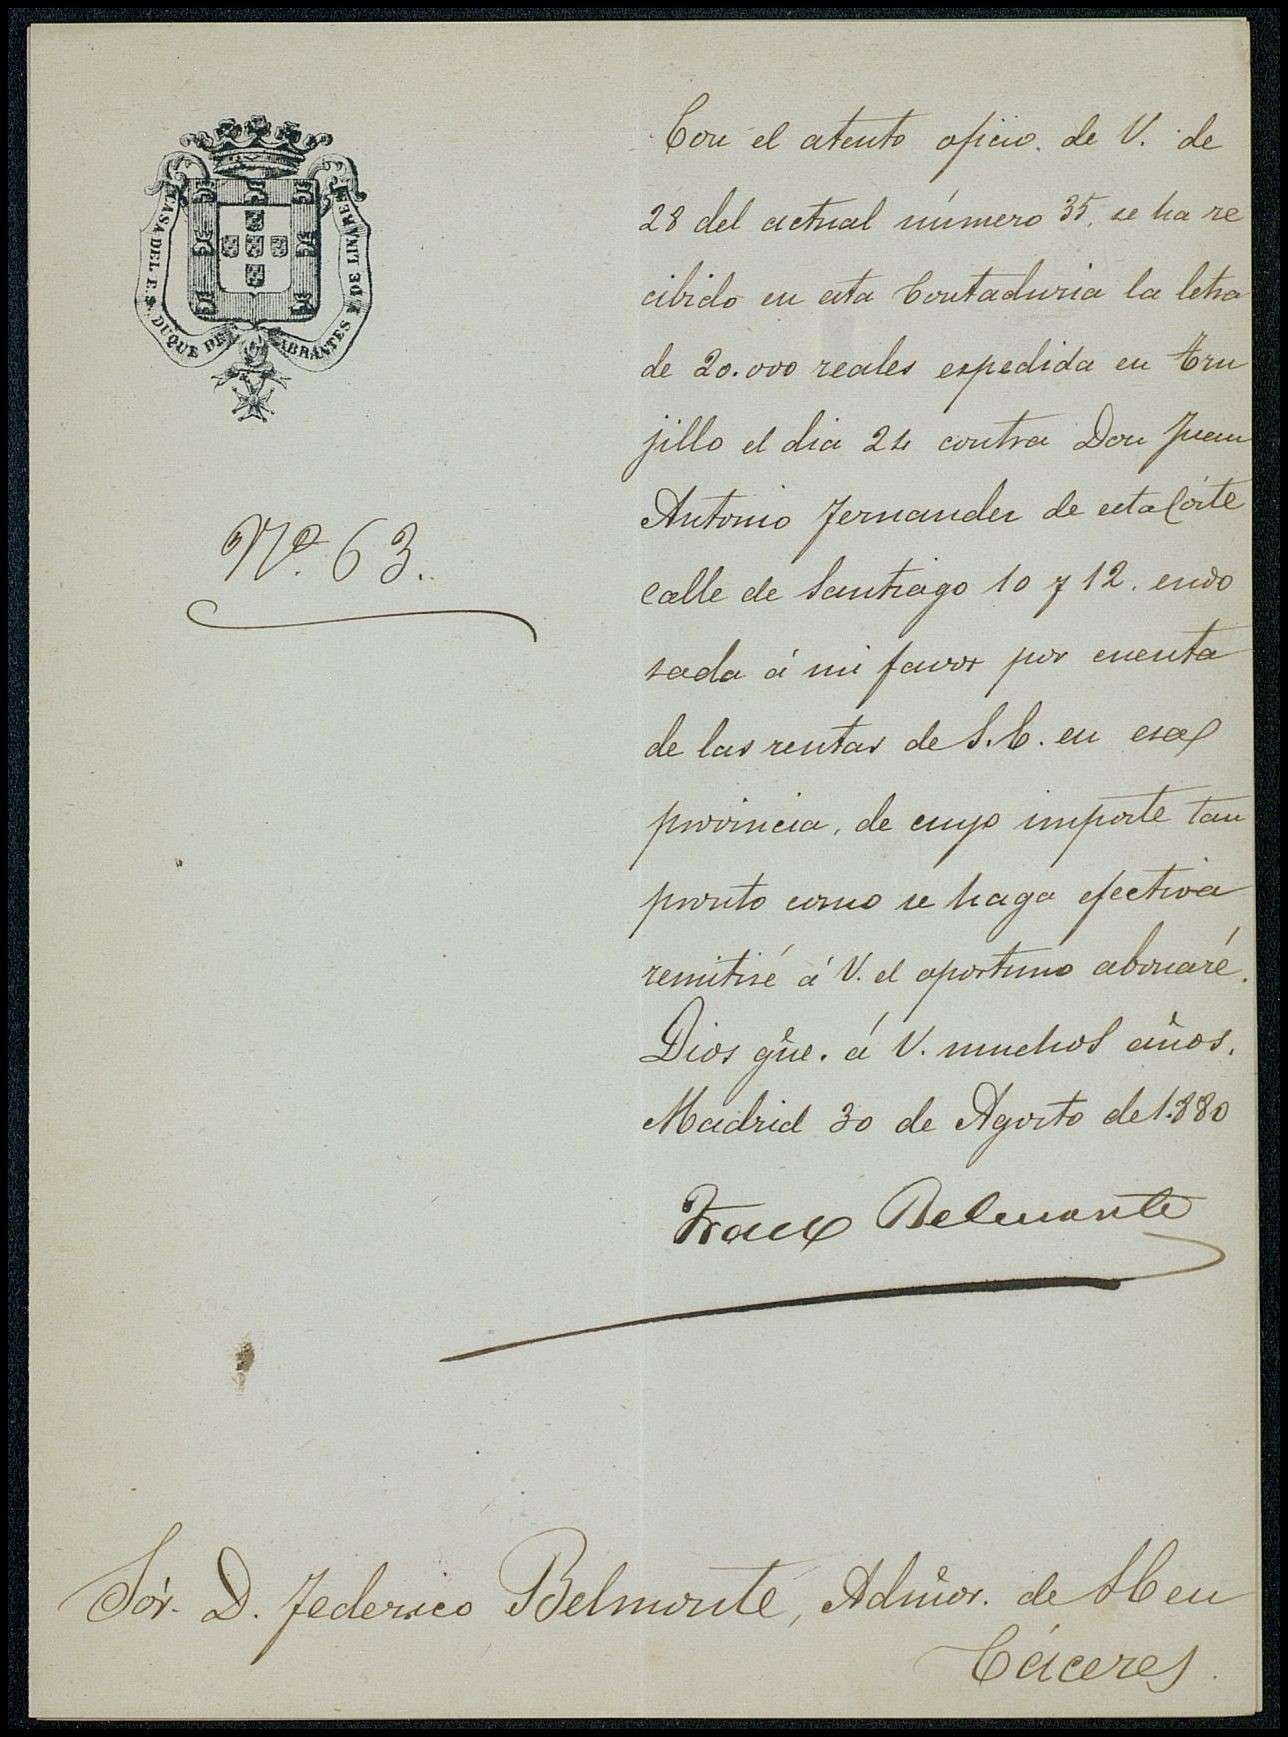 CASA DEL E. S. DUQUE DE ABRANTES Y DE LINARES
Nº. 63.
Con el atento oficio de V. de
28 del actual número 35, se ha re
cibido en esta Contaduria la letra
de 20.000 reales expedida en Tru
jillo el dia 24 contra Don Juan
Antonio Fernandez de esta Córte
calle de Santiago 10 y 12. endo
sada á mi favor por cuenta
de las rentas de S.E. en esa
provincia, de cuyo importe tan
pronto como se haga efectiva
remitiré á V. el oportuno abonaré.
Dios gûe. á V. muchos años.
Madrid 30 de Agosto de 1.880
Franco Belmonte
Sór. D. Federico Belmonte, Admor. de SE en
Cáceres.